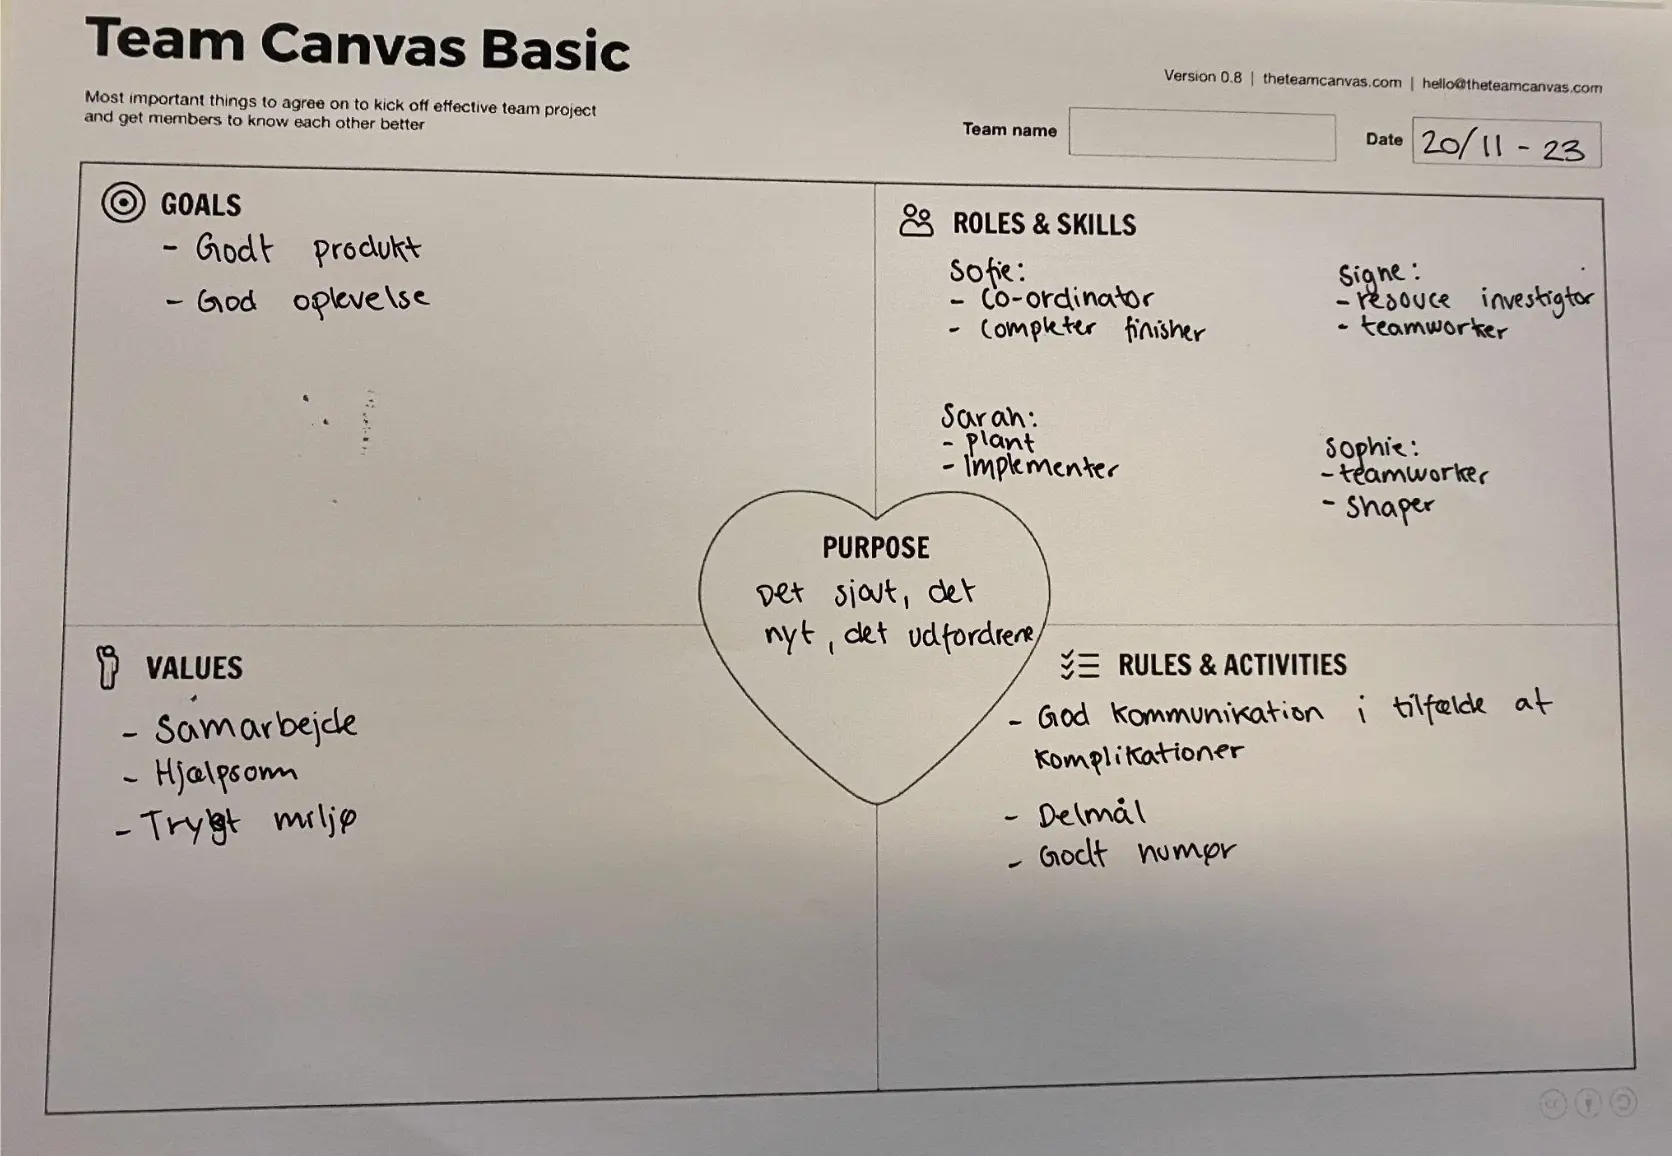 Team Canvas Basic
Most important things to agree on to kick off effective team project
and get members to know each other better
Version 0.8 | theteamcanvas.com | hello@theteamcanvas.com
Team name
Date 20/11 - 23
GOALS
- Godt produkt
- God oplevelse
ROLES & SKILLS
Sofie:
- Co-ordinator
- Completer finisher
Signe:
- resouce investigtor
- teamworker
Sarah:
- Plant
- Implementer
Sophie:
- teamworker
- Shaper
PURPOSE
Det sjovt, det
nyt, det udfordrene
VALUES
- Samarbejde
- Hjælpsom
- Trygt miljø
RULES & ACTIVITIES
- God kommunikation i tilfælde af
komplikationer
- Delmål
- Godt humør